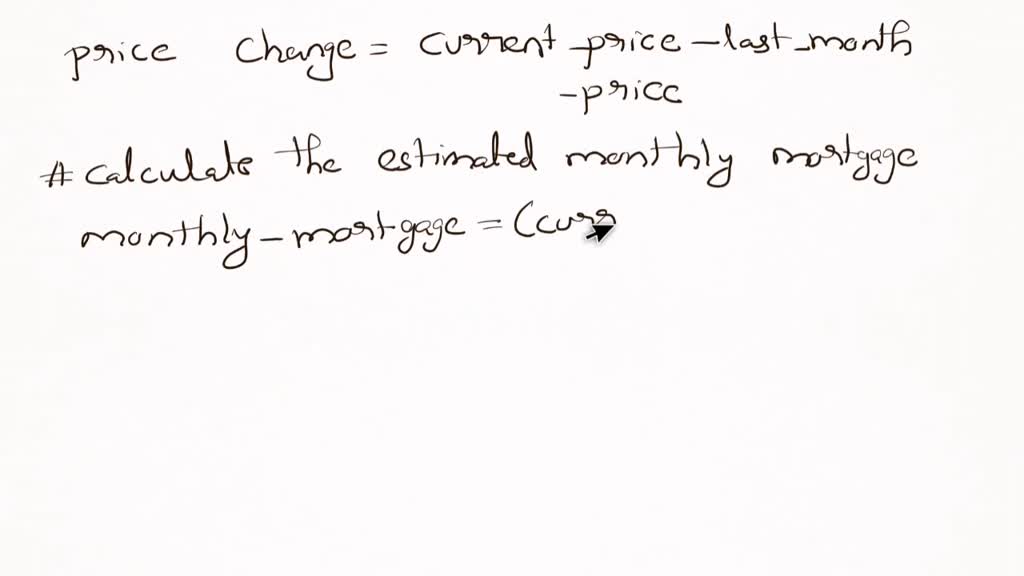 price change = current_price - last_month
-price
# calculate the estimated monthly mortgage
monthly-mortgage = (curr